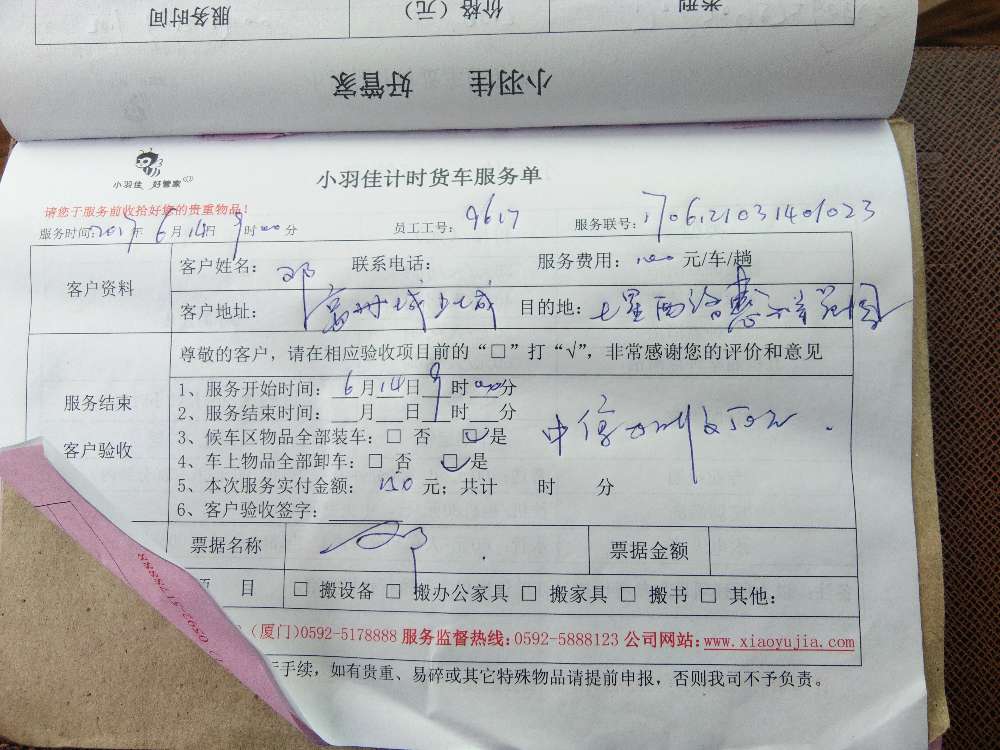 类型 价格（元） 服务时间
小羽佳 好管家
小羽佳 好管家
小羽佳计时货车服务单
请您于服务前收拾好您的贵重物品！
服务时间:2017年6月14日9时00分 员工工号：9617 服务联号：1706121031401023
客户资料
客户姓名：邓 联系电话： 服务费用：100元/车/趟
客户地址： 目的地：七星西路
尊敬的客户，请在相应验收项目前的“□”打“√”，非常感谢您的评价和意见
服务结束
客户验收
1、服务开始时间：6月14日9时00分
2、服务结束时间：__月__日__时__分
3、候车区物品全部装车：□ 否 □是
4、车上物品全部卸车：□ 否 □是
5、本次服务实付金额：150元；共计 时 分
6、客户验收签字：
票据名称 邓 票据金额
项 目 □ 搬设备 □ 搬办公家具 □ 搬家具 □ 搬书 □ 其他：
（厦门)0592-5178888 服务监督热线:0592-5888123 公司网站:www.xiaoyujia.com
手续，如有贵重、易碎或其它特殊物品请提前申报，否则我司不予负责。